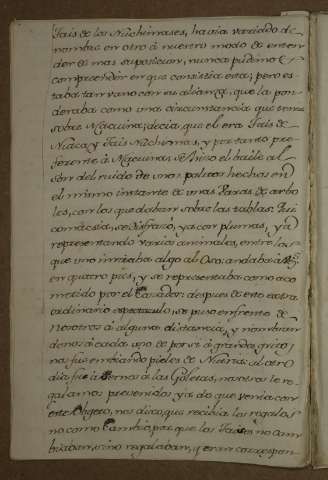 Tais de los Nuchimases, havia variado de
nombre en otro á nuestro modo de enten
der de mas suposicion, nunca pudimos
comprender en que consistia esta; pero es
taba tan vano con su alianza, que la pon
deraba como una circunstancia que tenia
sobre Macuina; decia que el era Tais de
Nuca, y Tais Nuchimas, y por tanto pre
ferente á Macuina. Se hizo el baile al
són del ruido de unos palitos hechos en
el mismo instante de unas Raxas de arbo
les, con los que daban sobre las tablas.
se disfrazó, ya con plumas, ya
representando varios animales, entre los
que uno imitaba algo al Oso: andaba
en quatro pies, y se representaba como aco
metido por el Cazador: despues de este extra
ordinario espectaculo, se puso enfrente de
nosotros á alguna distancia, y nombran
donos á cada uno de por sí á grandes gritos
nos fue embiando pieles de Nutria: al otro
dia fue á vernos á las Goletas, nosotros le re
galamos prevenidos ya de que venia con
este Objeto, nos dixo, que recibia los regalos
no como Cambio, por que los Taises no cam
biaban, sino regalaban, y eran correspon